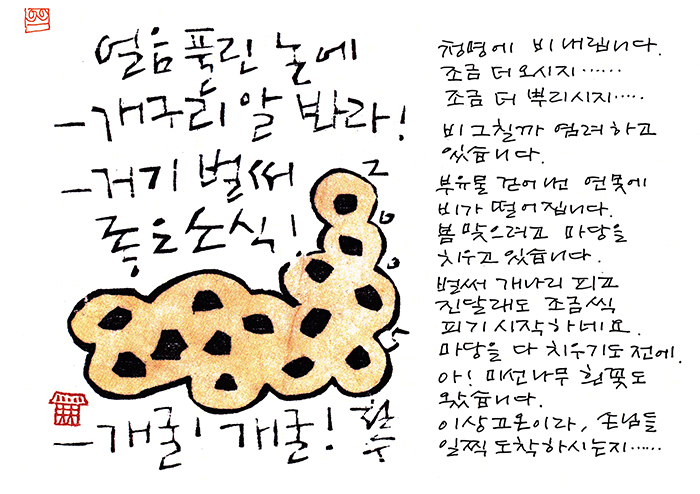 얼음 풀린 논에
- 개구리 알 봐라!
- 거기 벌써
좋은 소식!
- 개굴! 개굴!
철수
청명에 비 내립니다.
조금 더 오시지……
조금 더 뿌리시지……
비 그칠까 염려하고
있습니다.
부유물 걷어낸 연못에
비가 떨어집니다.
봄 맞으려고 마당을
치우고 있습니다.
벌써 개나리 피고
진달래도 조금씩
피기 시작하네요.
마당을 다 치우기도 전에.
아! 미선나무 흰꽃도
왔습니다.
이상고온이라, 손님들
일찍 도착하시는지……